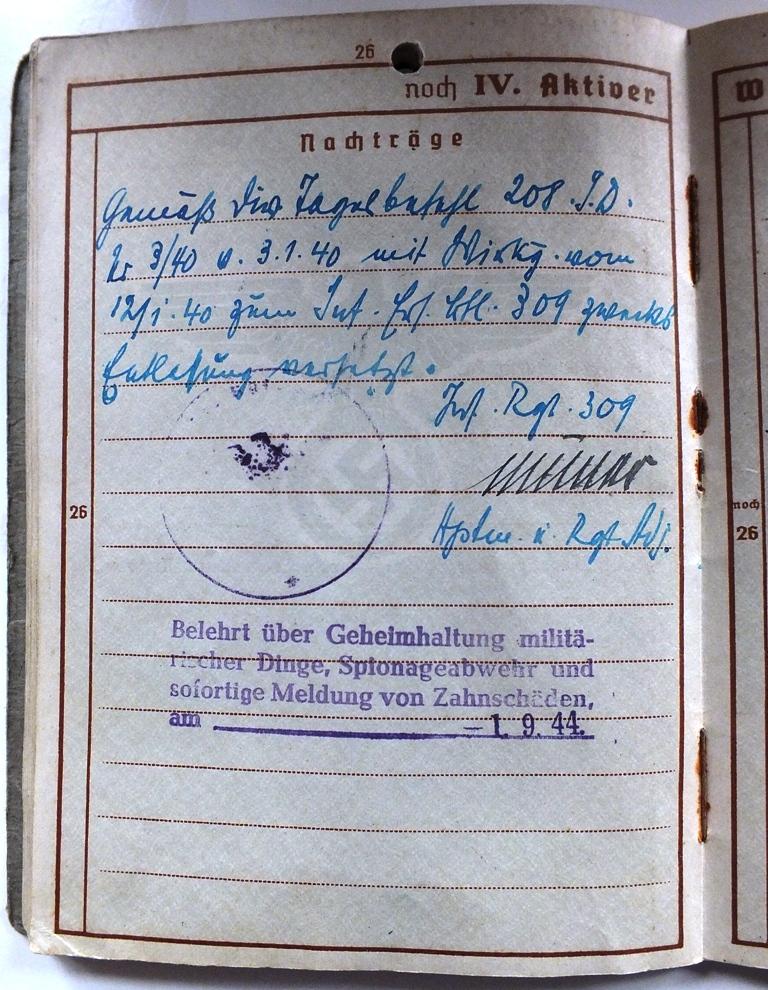 26
noch IV. Aktiver
Nachträge
Gemäß Div Tagesbefehl 208. I.D.
Nr 3/40 v. 3.1.40 mit Wirkg. vom
12/1.40 zum Inf. Ers. Btl. 309 zwecks
Entlassung versetzt.
Inf. Rgt. 309
Hptm. u. Rgt. Adj.
26
Belehrt über Geheimhaltung militä-
rischer Dinge, Spionageabwehr und
sofortige Meldung von Zahnschäden,
am -1. 9. 44.
W
noch
26